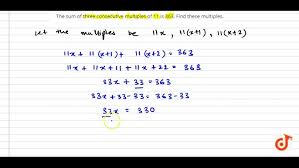 The sum of three consecutive multiples of 11 is 363. Find these multiples.
Let the multiples be 11x, 11(x+1), 11(x+2)
11x + 11(x+1) + 11(x+2) = 363
11x + 11x+11 + 11x + 22 = 363
33x + 33 = 363
33x + 33 - 33 = 363 - 33
33x = 330